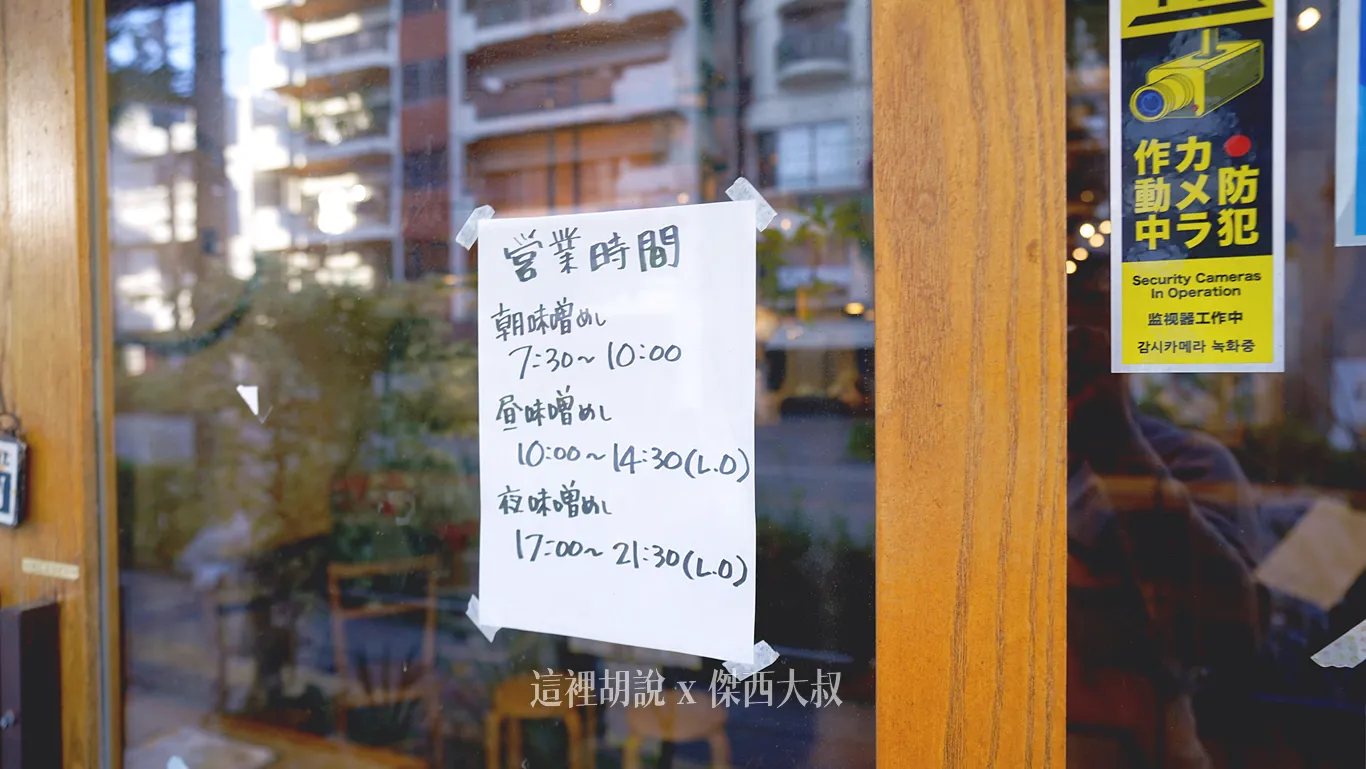 営業時間
朝味噌めし
7:30~10:00
昼味噌めし
10:00~14:30(L.O)
夜味噌めし
17:00~21:30(L.O)
防犯
カメラ
作動中
Security Cameras
In Operation
监视器工作中
감시카메라 녹화중
這裡胡說 x 傑西大叔